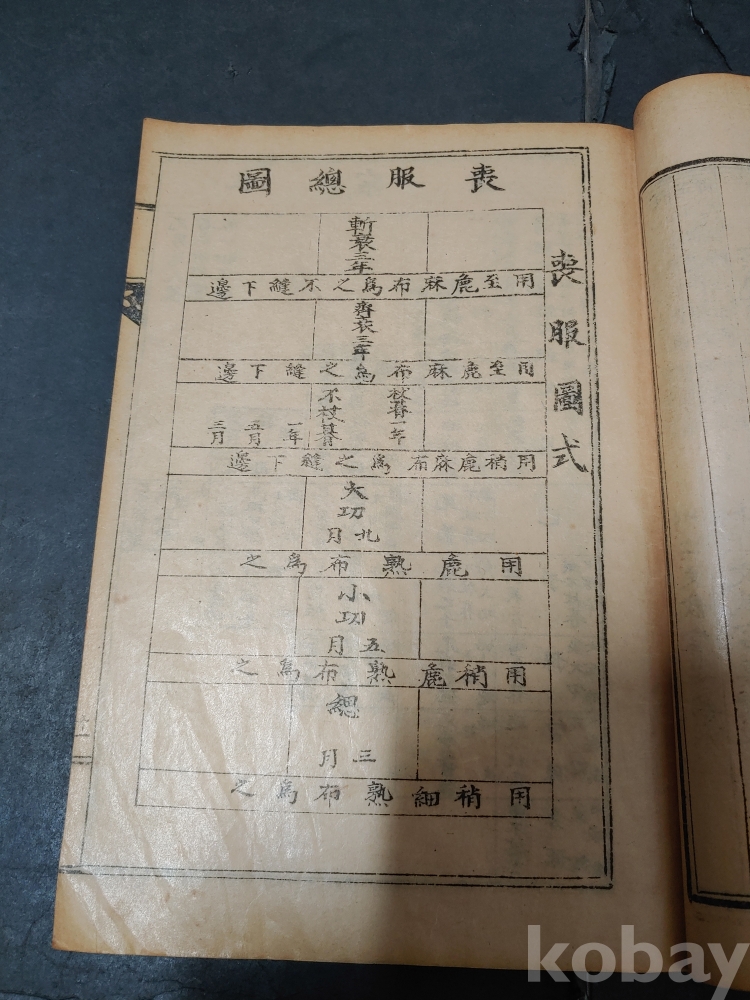 喪服圖式
喪服總圖
斬衰三年
用至麁麻布爲之不縫下邊
齊衰三年
用至麁麻布爲之縫下邊
杖朞一年
不杖朞
一年
五月
三月
用稍麁麻布爲之縫下邊
大功
九月
用麁熟布爲之
小功
五月
用稍麁熟布爲之
緦
三月
用稍細熟布爲之
kobay